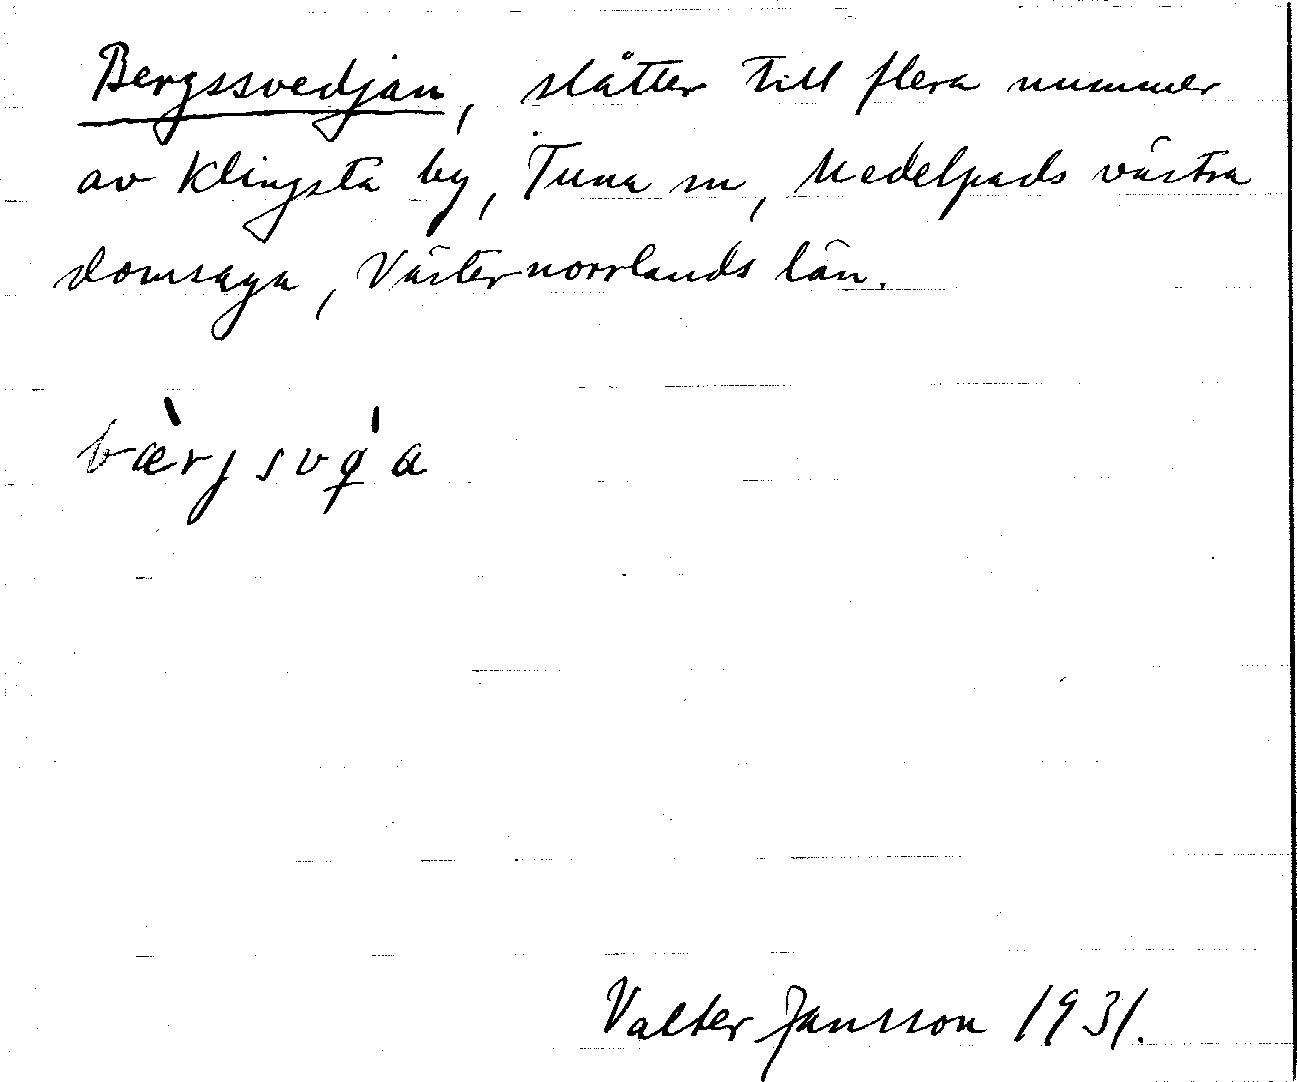 Bergssvedjan, slåtter till flera nummer
av Klingsta by, Tuna sn, Medelpads västra
domsaga, Västernorrlands län.
Valter Jansson 1931.